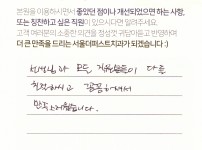 본원을 이용하시면서 좋았던 점이나 개선되었으면 하는 사항,
또는 칭찬하고 싶은 직원이 있으시다면 알려주세요.
고객 여러분의 소중한 의견을 정성껏 귀담아듣고 반영하여
더 큰 만족을 드리는 서울더퍼스트치과가 되겠습니다 :)
선생님과 모든 직원분들이 다들
친절하시고 꼼꼼하셔서
만족스러웠습니다.